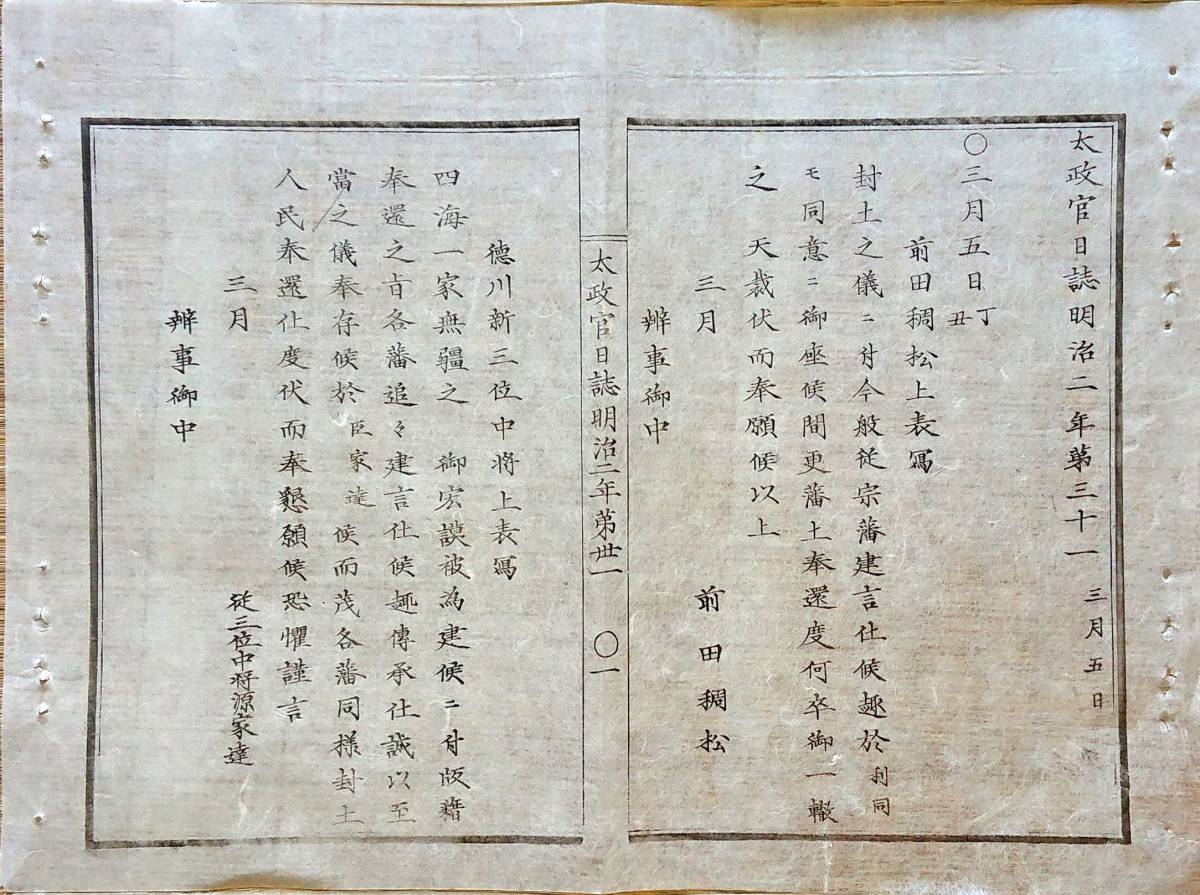 太政官日誌明治二年第三十一 三月五日
〇三月五日丁丑
前田稠松上表寫
封土之儀ニ付今般従宗藩建言仕候趣於利同
モ同意ニ御座候間更藩土奉還度何卒御一轍
之 天裁伏而奉願候以上
三月 前田稠松
辨事御中
太政官日誌明治二年第丗一 〇一
德川新三位中将上表寫
四海一家無疆之 御宏謨被為建候ニ付版籍
奉還之旨各藩追々建言仕候趣傳承仕誠以至
當之儀奉存候於臣家達候而茂各藩同様封土
人民奉還仕度伏而奉懇願候恐懼謹言
三月 従三位中将源家達
辨事御中